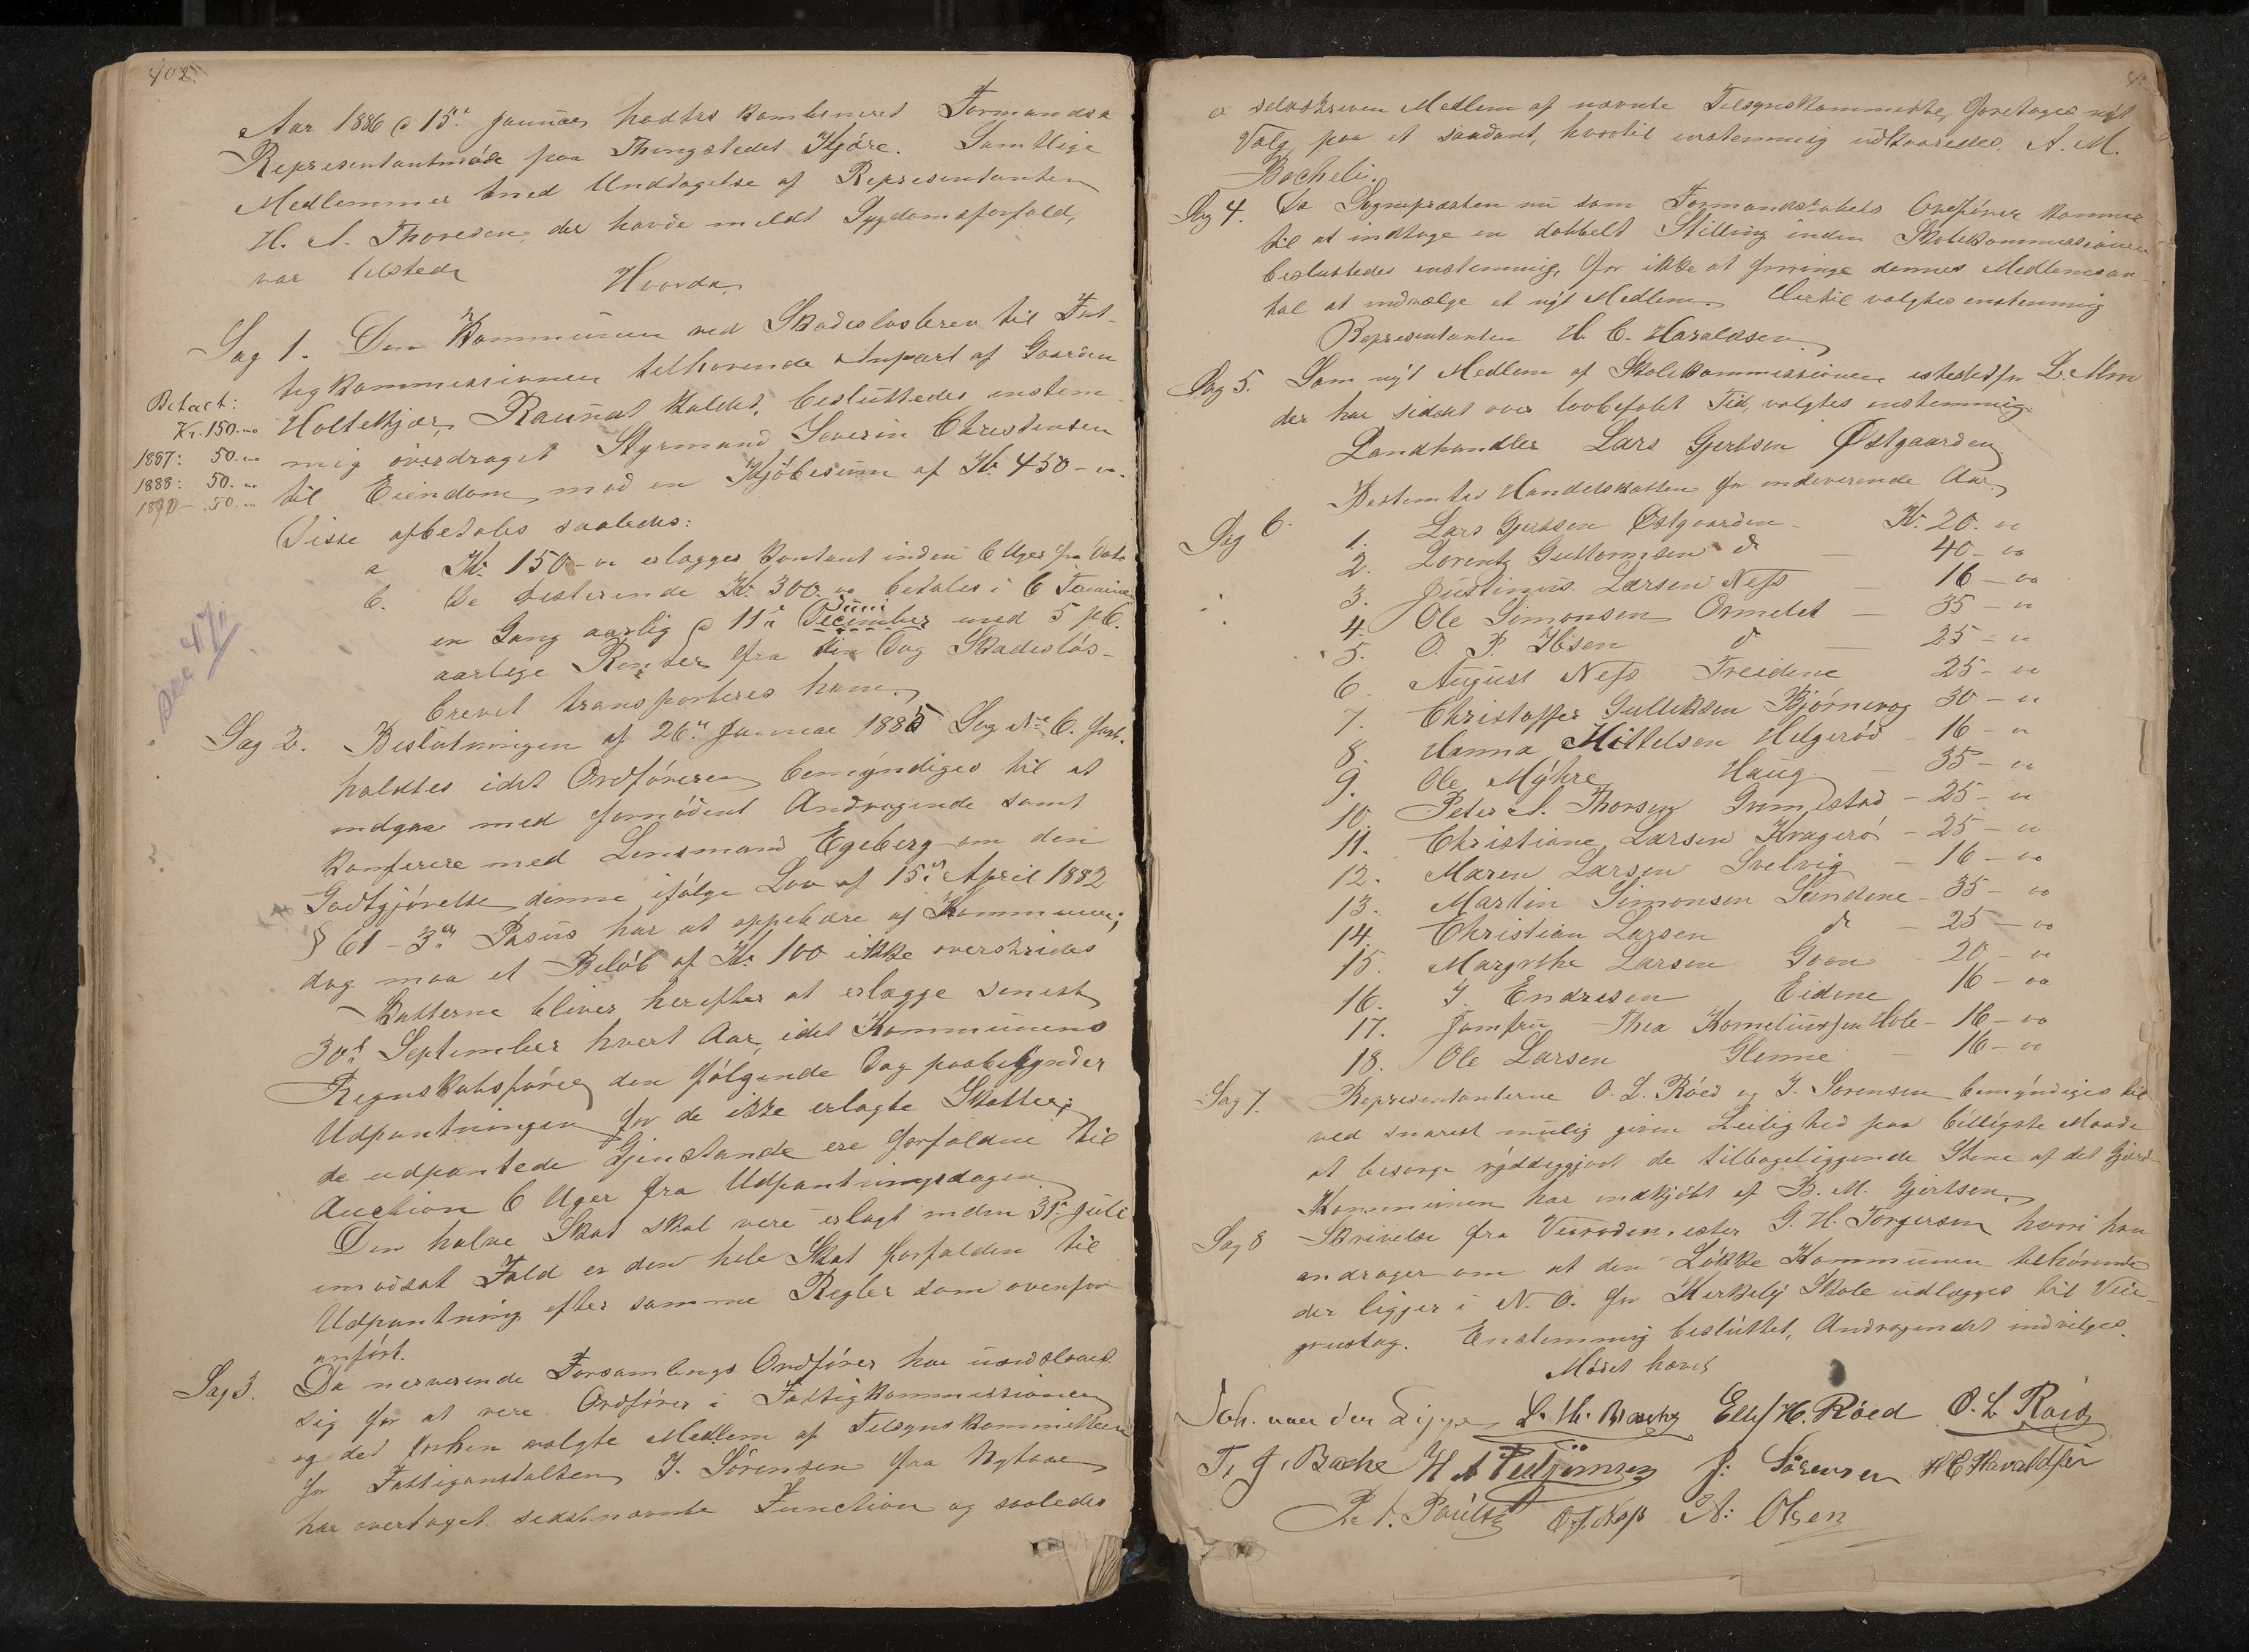 402.
Aar 1886 d 15de Januar holdtes kombineret Formands &
Representantmøde paa Thingstedet Kjøre. Samtlige
Medlemmer med Undtagelse af Representanten
H. A. Thoresen, der havde meldt Sygdomsforfald,
var tilstede
Hvorda
Sag 1. Den Kommunen ved Skadesløsbrev til Fat-
tigkommissionen tilhørende Anpart af Gaarden
Holtekjær, Raunat kaldet, besluttedes enstem-
mig overdraget Styrmand Severin Christensen
til Eiendom mod en Kjøbesum af Kr. 450-00.
Betalt:
Kr. 150.00
1887: 50.00
1888: 50.00
1890- 50.00
Disse afbetales saaledes:
a Kr. 150-00 erlægges kontant inden 6 Uger fra Dato
b. De resterende Kr. 300.00 betales i 6 Terminer
Juni
en Gang aarlig d 11te December med 5 pC.
aarlige Renter fra den Dag Skadesløs-
brevet transporteres ham.
Sag 2. Beslutningen af 26de Januar 1885 Sag No 6. fast-
holdtes idet Ordføreren bemyndiges til at
indgaa med fornødent Andragende samt
konferere med Lensmand Egeberg om den
Godtgjørelse denne ifølge Lov af 15de April 1882
§ 61 - 3die Pasus har at oppebære af Kommunen;
dog maa et Beløb af Kr. 100 ikke overskrides
Skatterne bliver herefter at erlægge senest
30te September hvert Aar, idet Kommunens
Regnskabsfører den følgende Dag paabegynder
Udpantningen for de ikke erlagte Skatter;
de udpantede Gjenstande ere forfaldne til
Auction 6 Uger fra Udpantningsdagen.
Den halve Skat skal være erlagt inden 31te Juli
imodsat Fald er den hele Skat forfalden til
Udpantning efter samme Regler som ovenfor
anført.
Sag 3. Da nerværende Forsamlings Ordfører har undslaaet
sig for at være Ordfører i Fattigkommissionen
og det forhen valgte Medlem af Tilsynskommitteen
for Fattiganstalten J. Sørensen fra Nytaae
har overtaget sidstnævnte Function og saaledes
er selvskreven Medlem af nævnte Tilsynskommitte, foretoges nyt
Valg paa et saadant, hvortil enstemmig udkaaredes A. M.
Bacheli.
Sag 4. Da Sognepræsten nu som Formandskabets Ordfører kommer
til at indtage en dobbelt Stilling inden Skolekommissionen
besluttedes enstemmig, for ikke at forringe dennes Medlemsan-
tal at indvælge et nyt Medlem. Hertil valgtes enstemmig
Representanten H. C. Haraldsen
Sag 5. Som nyt Medlem af Skolekommissionen istedetfor L. Alm
der har siddet over lovbefalet Tid, valgtes enstemmig
Landhandler Lars Gjertsen Østgaarden
Sag 6. Bestemtes Handelsskatten for indeværende Aar
1. Lars Gjertsen Østgaarden - Kr. 20.00
2. Lorentz Guttormsen do — 40-00
3. Justinus Larsen Ness — 16-00
4. Ole Simonsen Ormelet — 35-00
5. O. P. Ibsen do — 25-00
6. August Ness Treidene 25-00
7. Christoffer Gulliksen Bjørnevag 30-00
8. Hanna Mikkelsen Helgerød - 16-00
9. Ole Myhre Haug — 35-00
10. Peter A. Thorsen Grimestad - 25-00
11. Christiane Larsen Kragerø - 25-00
12. Maren Larsen Svelvig - 16-00
13. Martin Simonsen Sandene - 35-00
14. Christian Larsen do - 25-00
15. Margrethe Larsen Goen - 20-00
16. J. Endresen Eidene 16-00
17. Jomfru Thea Korneliussen Hole - 16-00
18. Ole Larsen Glenne - 16-00
Sag 7. Representanterne O. L. Røed og J. Sørensen bemyndiges til
ved snarest mulig given Leilighed paa billigste Maade
at besørge ryddiggjort de tilbageliggende Stene af det Gjærd
Kommunen har indkjøbt af B. M. Gjertsen.
Sag 8 Skrivelse fra Veirodemester G. H. Torgersen hvori han
andrager om at den Løkke Kommunen tilhørende
der ligger i N. O. for Kirkelig Skole udlægges til Vei-
grustag. Enstemmig besluttet, Andragendet indvilges.
Mødet hævet
Joh. van der Lippe L. M. Bache Ellef H. Røed O. L. Røed
T. J. Bache J. Sørensen H C Haraldsen
O. J. Ness A. Olsen